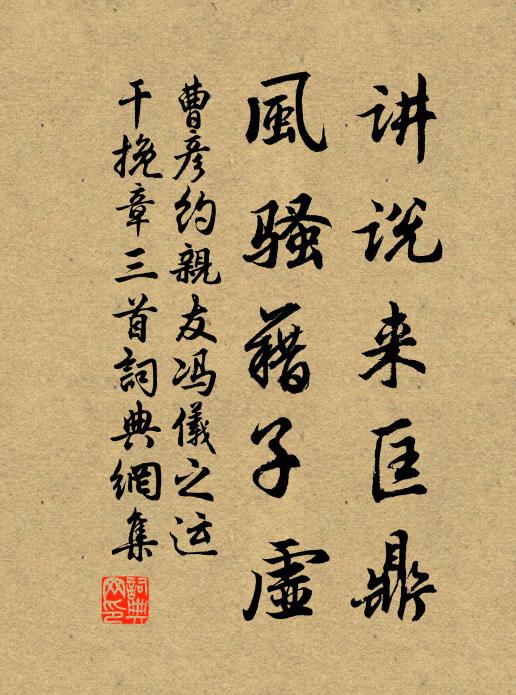 讲说来匡鼎
風骚藉子虚
曹彦约親友冯儀之运
干挽章三首詞典網集
詞典网印